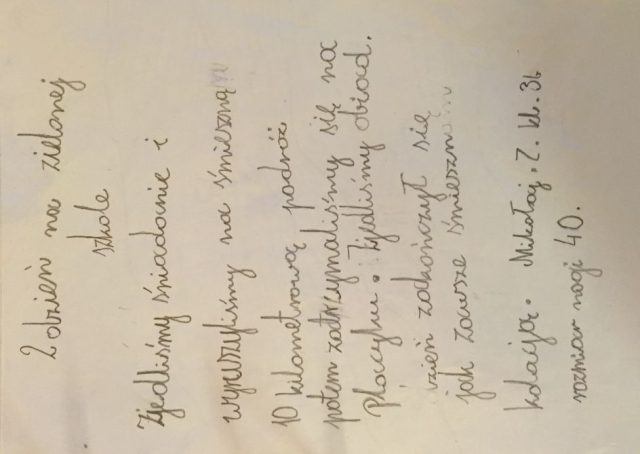 2 dzień na zielonej
szkole
Zjedliśmy śniadanie i
wyruszyliśmy na śmieszną
10 kilometrową podróż
potem zatrzymaliśmy się na
Placyku. Zjedliśmy obiad.
dzień zakończył się
jak zawsze śmieszn
kolacją. Mikołaj. Z. kl. 3b
rozmiar nogi 40.